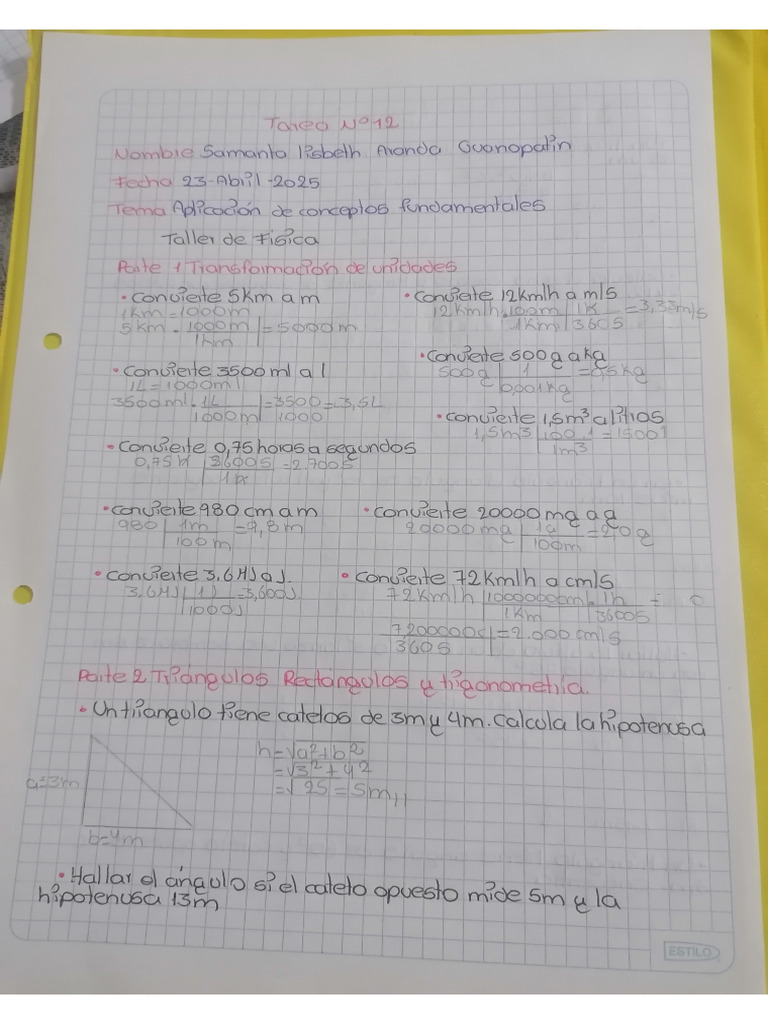 Tarea Nº12
Nombre Samanta lisbeth Aranda Guanopatin
Fecha 23-Abril-2025
Tema Aplicación de conceptos fundamentales
Taller de Física
Parte 1 Transformación de unidades
• Convierte 5Km a m
1Km = 1000m
5Km . 1000m = 5000m
1Km
• Convierte 12Km/h a m/s
12Km/h . 100m 1k = 3,33m/s
1Km 360s
• Convierte 3500ml a l
1L = 1000ml
3500ml . 1L = 3500 = 3,5L
1000m 1000
• Convierte 500g a kg
500g 1 = 0,5kg
0,001kg
• Convierte 1,5m³ a litros
1,5m³ 100 1 = 1500 l
1m³
• Convierte 0,75 horas a segundos
0,75h 3600s = 2.700s
1h
• Convierte 980 cm a m
980 1m = 9,8m
100m
• Convierte 20000mg a g
20000mg 1g = 20g
100m
• Convierte 3.6MJ a J.
3,6MJ 1J = 3,600J
1000J
• Convierte 72Km/h a cm/s
72Km/h 1000000m . 1h =
1Km 3600s
7200000c = 2.000 cm/s
360s
Parte 2 Triángulos Rectángulos y trigonometría.
• Un triangulo tiene catetos de 3m y 4m. Calcula la hipotenusa
h=√a²+b²
=√3²+4²
=√25 = 5m,,
a=3m
b=4m
• Hallar el ángulo si el cateto opuesto mide 5m y la
hipotenusa 13m
ESTILO